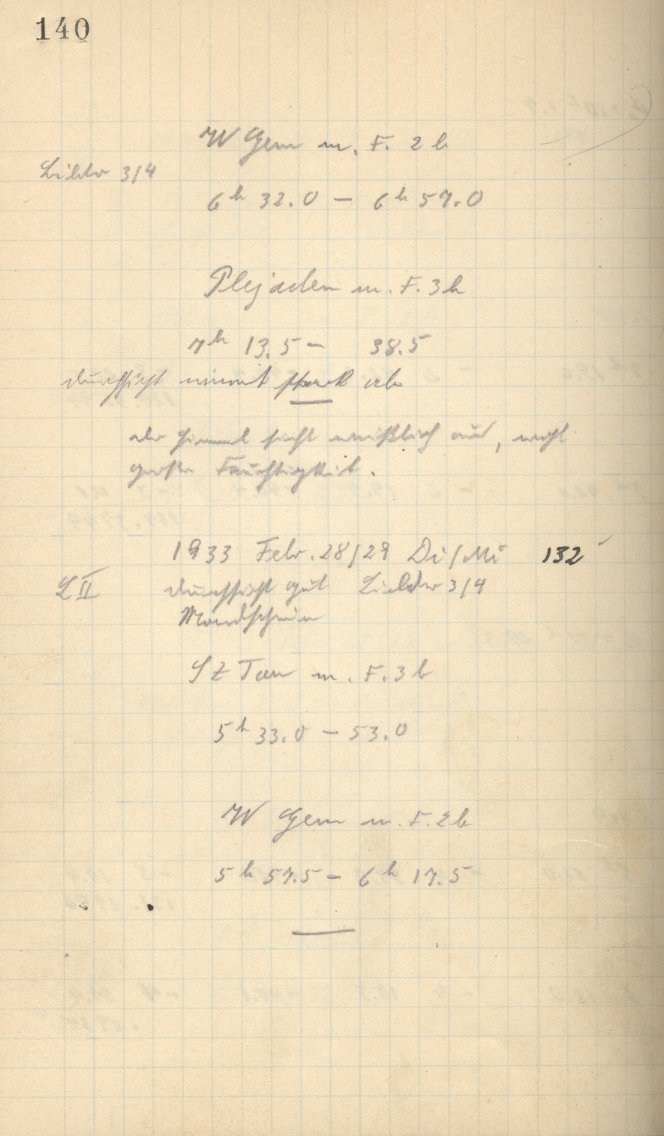 140
W Gem m. F. 2 b
Bilder 3/4
6h 32.0 – 6h 57.0
Plejaden m. F. 3 b
7h 13.5 – 38.5
Durchsicht nimmt stark ab
der Himmel sieht weißlich aus, wohl
große Feuchtigkeit.
1933 Febr. 28/29 Di/Mi 132
L II Durchsicht gut Bilder 3/4
Mondschein
SZ Tau m. F. 3 b
5h 33.0 – 53.0
W Gem m. F. 2 b
5h 57.5 – 6h 17.5